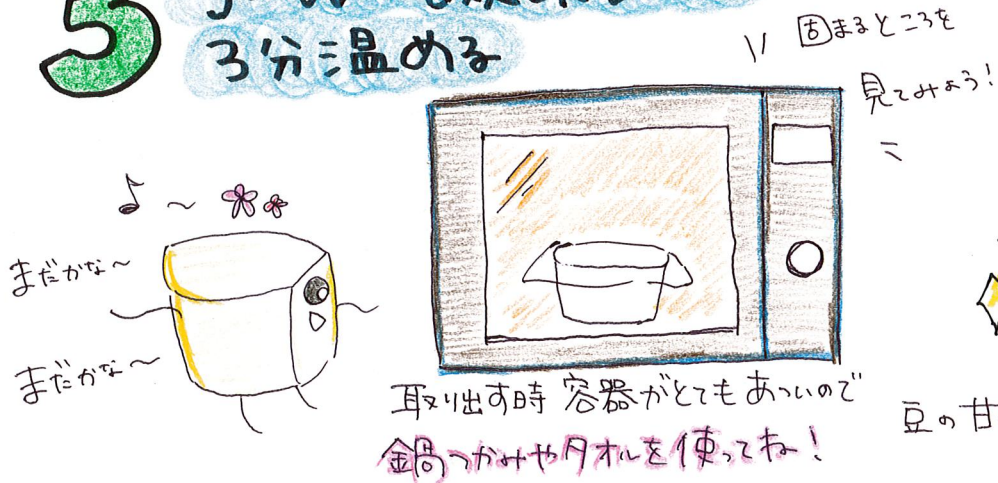 5
3分温める
固まるところを
見てみよう!
まだかな〜
まだかな〜
取り出す時 容器がとてもあついので
鍋つかみやタオルを使ってね!
豆の甘